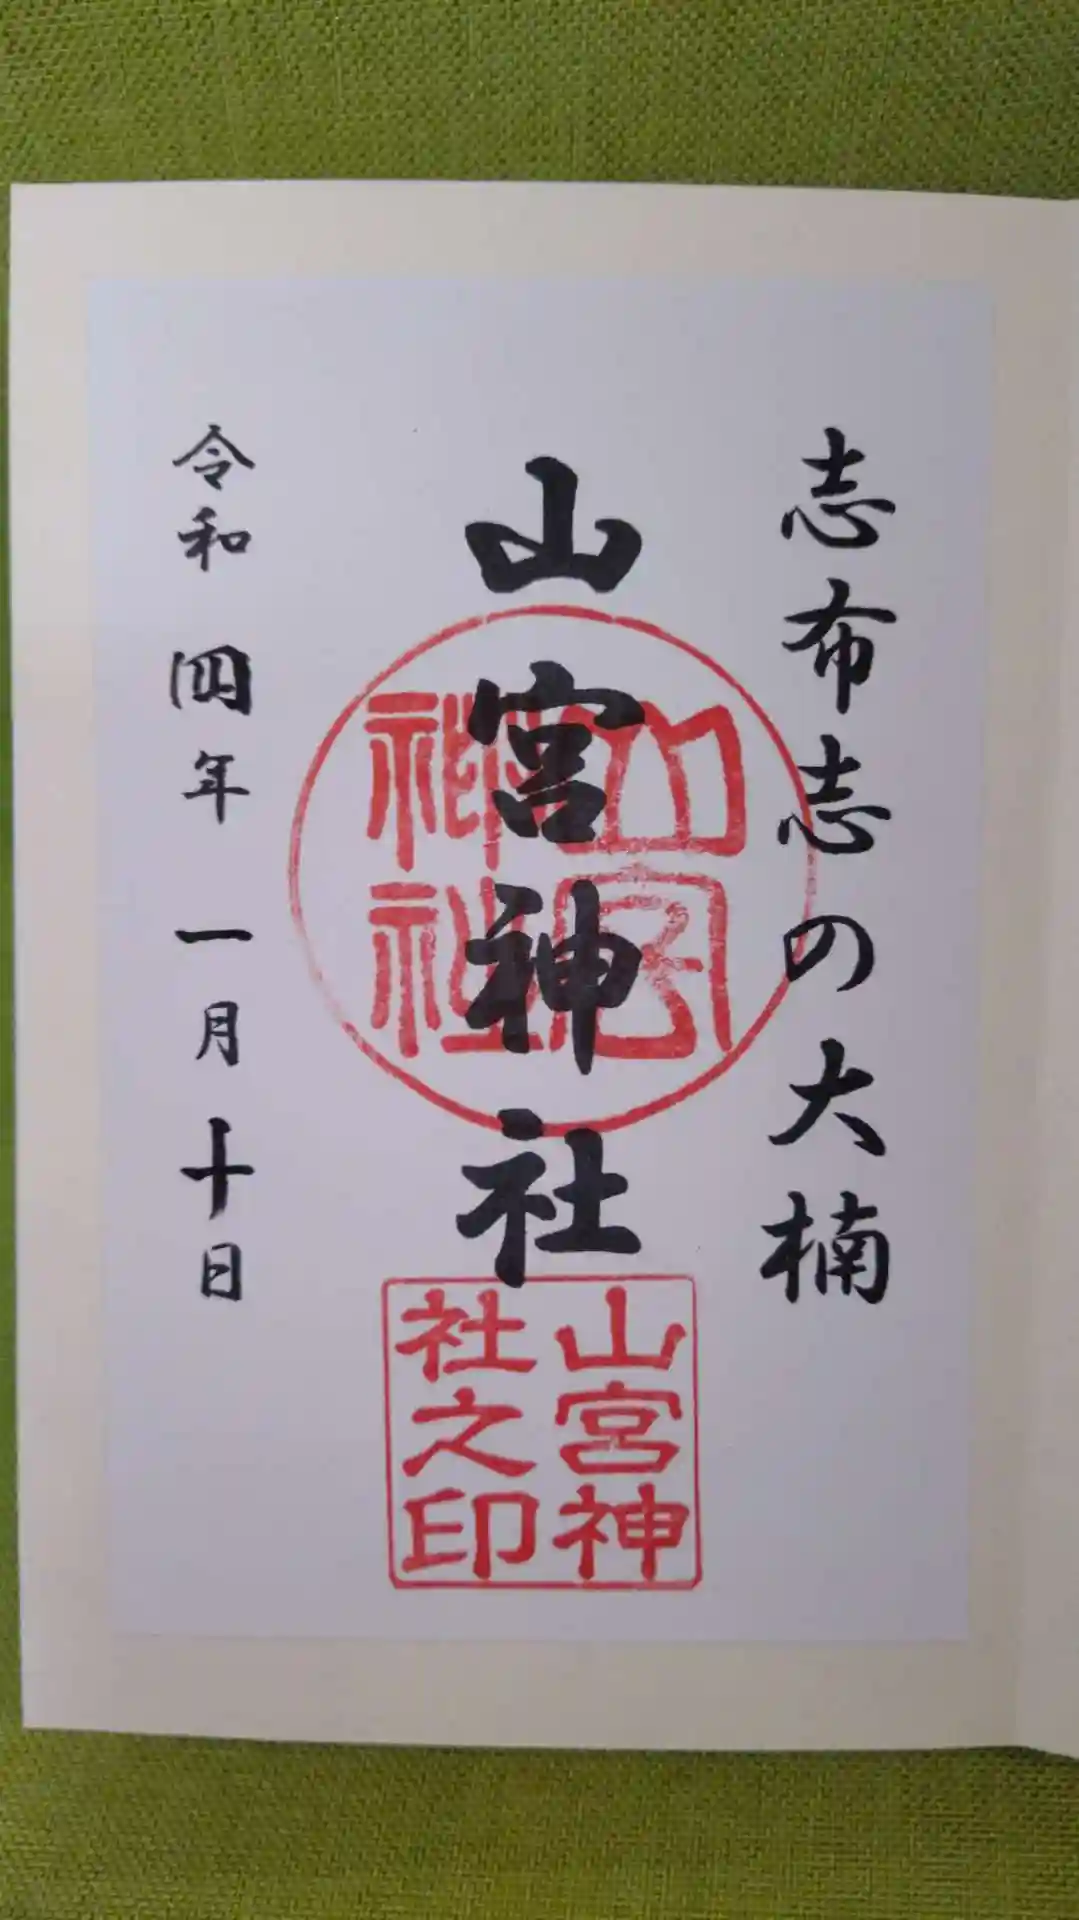 志布志の大楠
山宮神社
山宮
神社
山宮神
社之印
令和四年一月十日